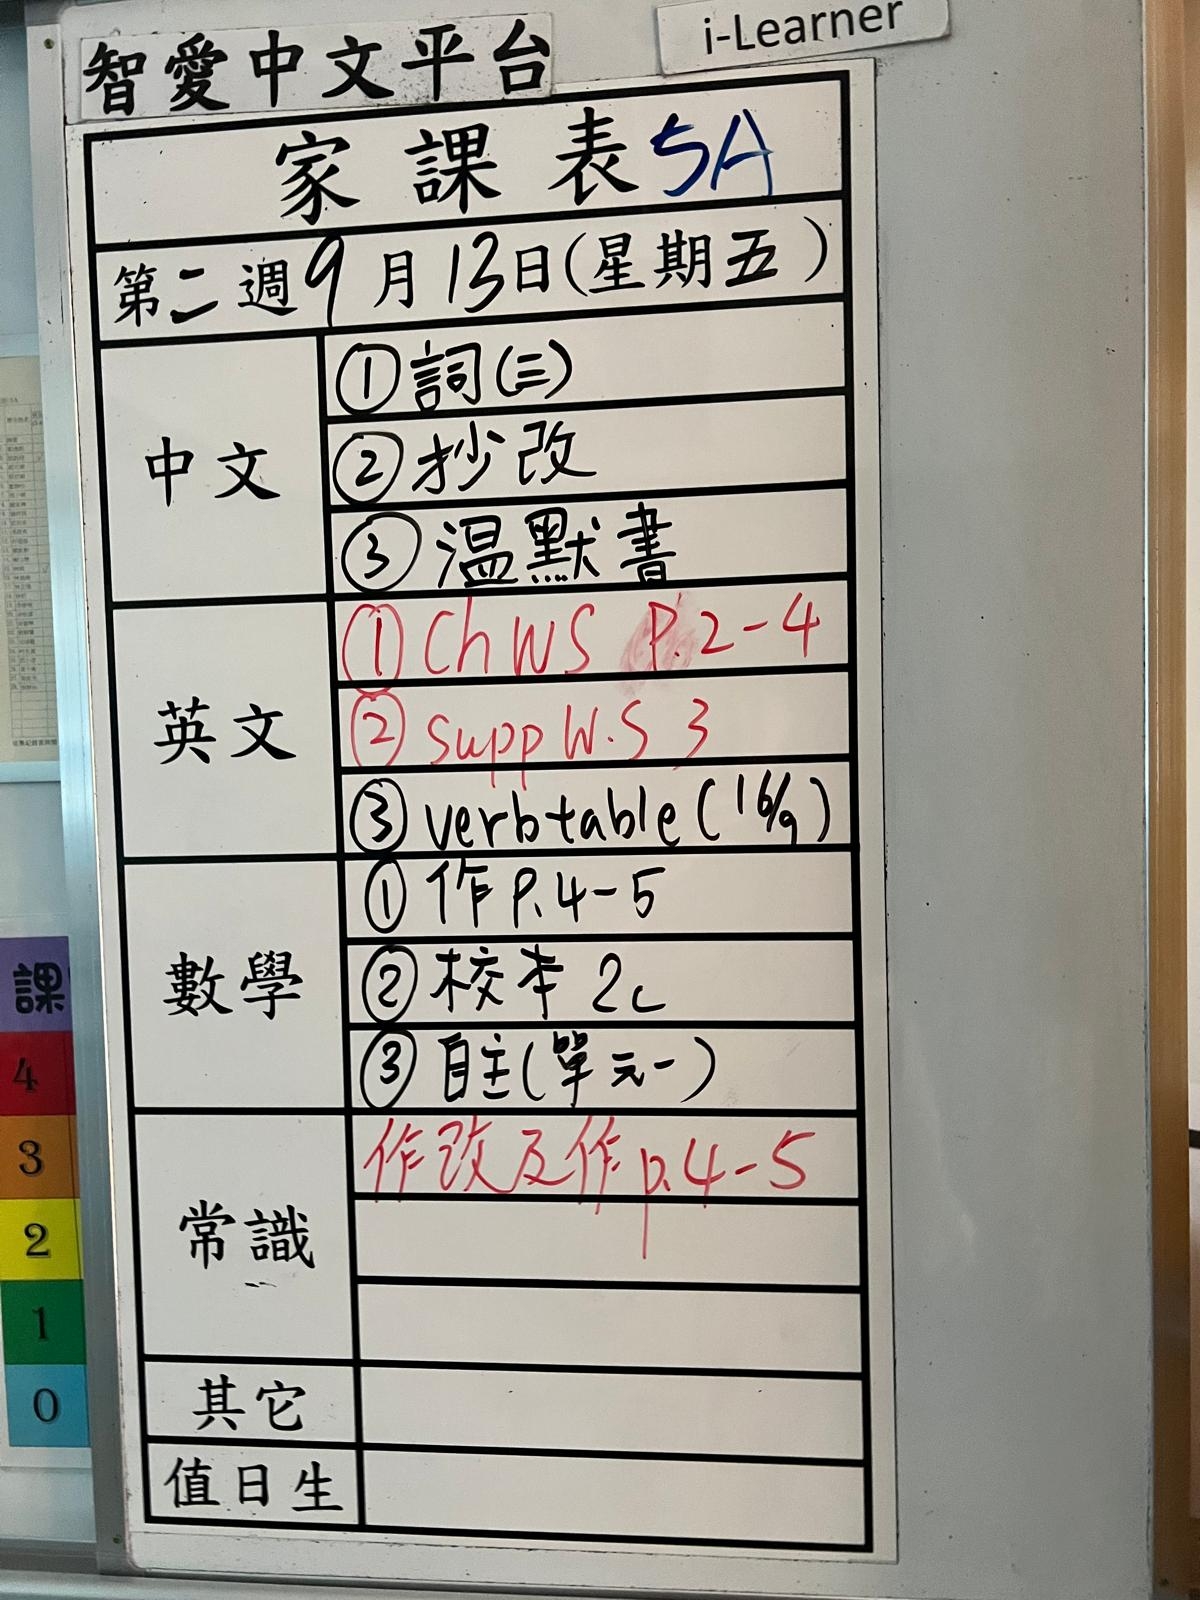 智愛中文平台
i-Learner
家課表 5A
第二週 9月13日(星期五)
中文
①詞(三)
②抄改
③温默書
英文
①Ch WS P.2-4
②Supp W.S 3
③verb table (16/9)
數學
①作 P.4-5
②校本 2c
③自主(單元一)
常識
作改及作 p.4-5
其它
值日生
課
4
3
2
1
0